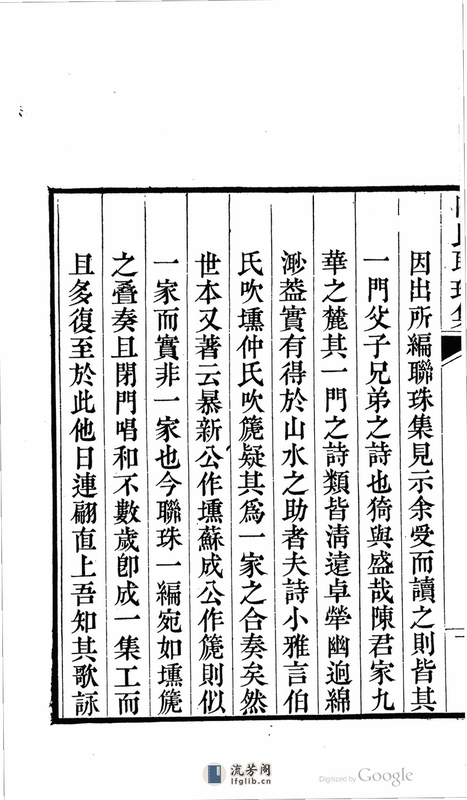 氏聯珠集
因出所編聯珠集見示余受而讀之則皆其
一門父子兄弟之詩也猗與盛哉陳君家九
華之麓其一門之詩類皆清遠卓犖幽逈綿
渺葢實有得於山水之助者夫詩小雅言伯
氏吹壎仲氏吹篪疑其爲一家之合奏矣然
世本又著云暴新公作壎蘇成公作篪則似
一家而實非一家也今聯珠一編宛如壎篪
之疊奏且閉門唱和不數歲卽成一集工而
且多復至於此他日連翩直上吾知其歌詠
流芳阁
lfglib.cn
Digitized by Google